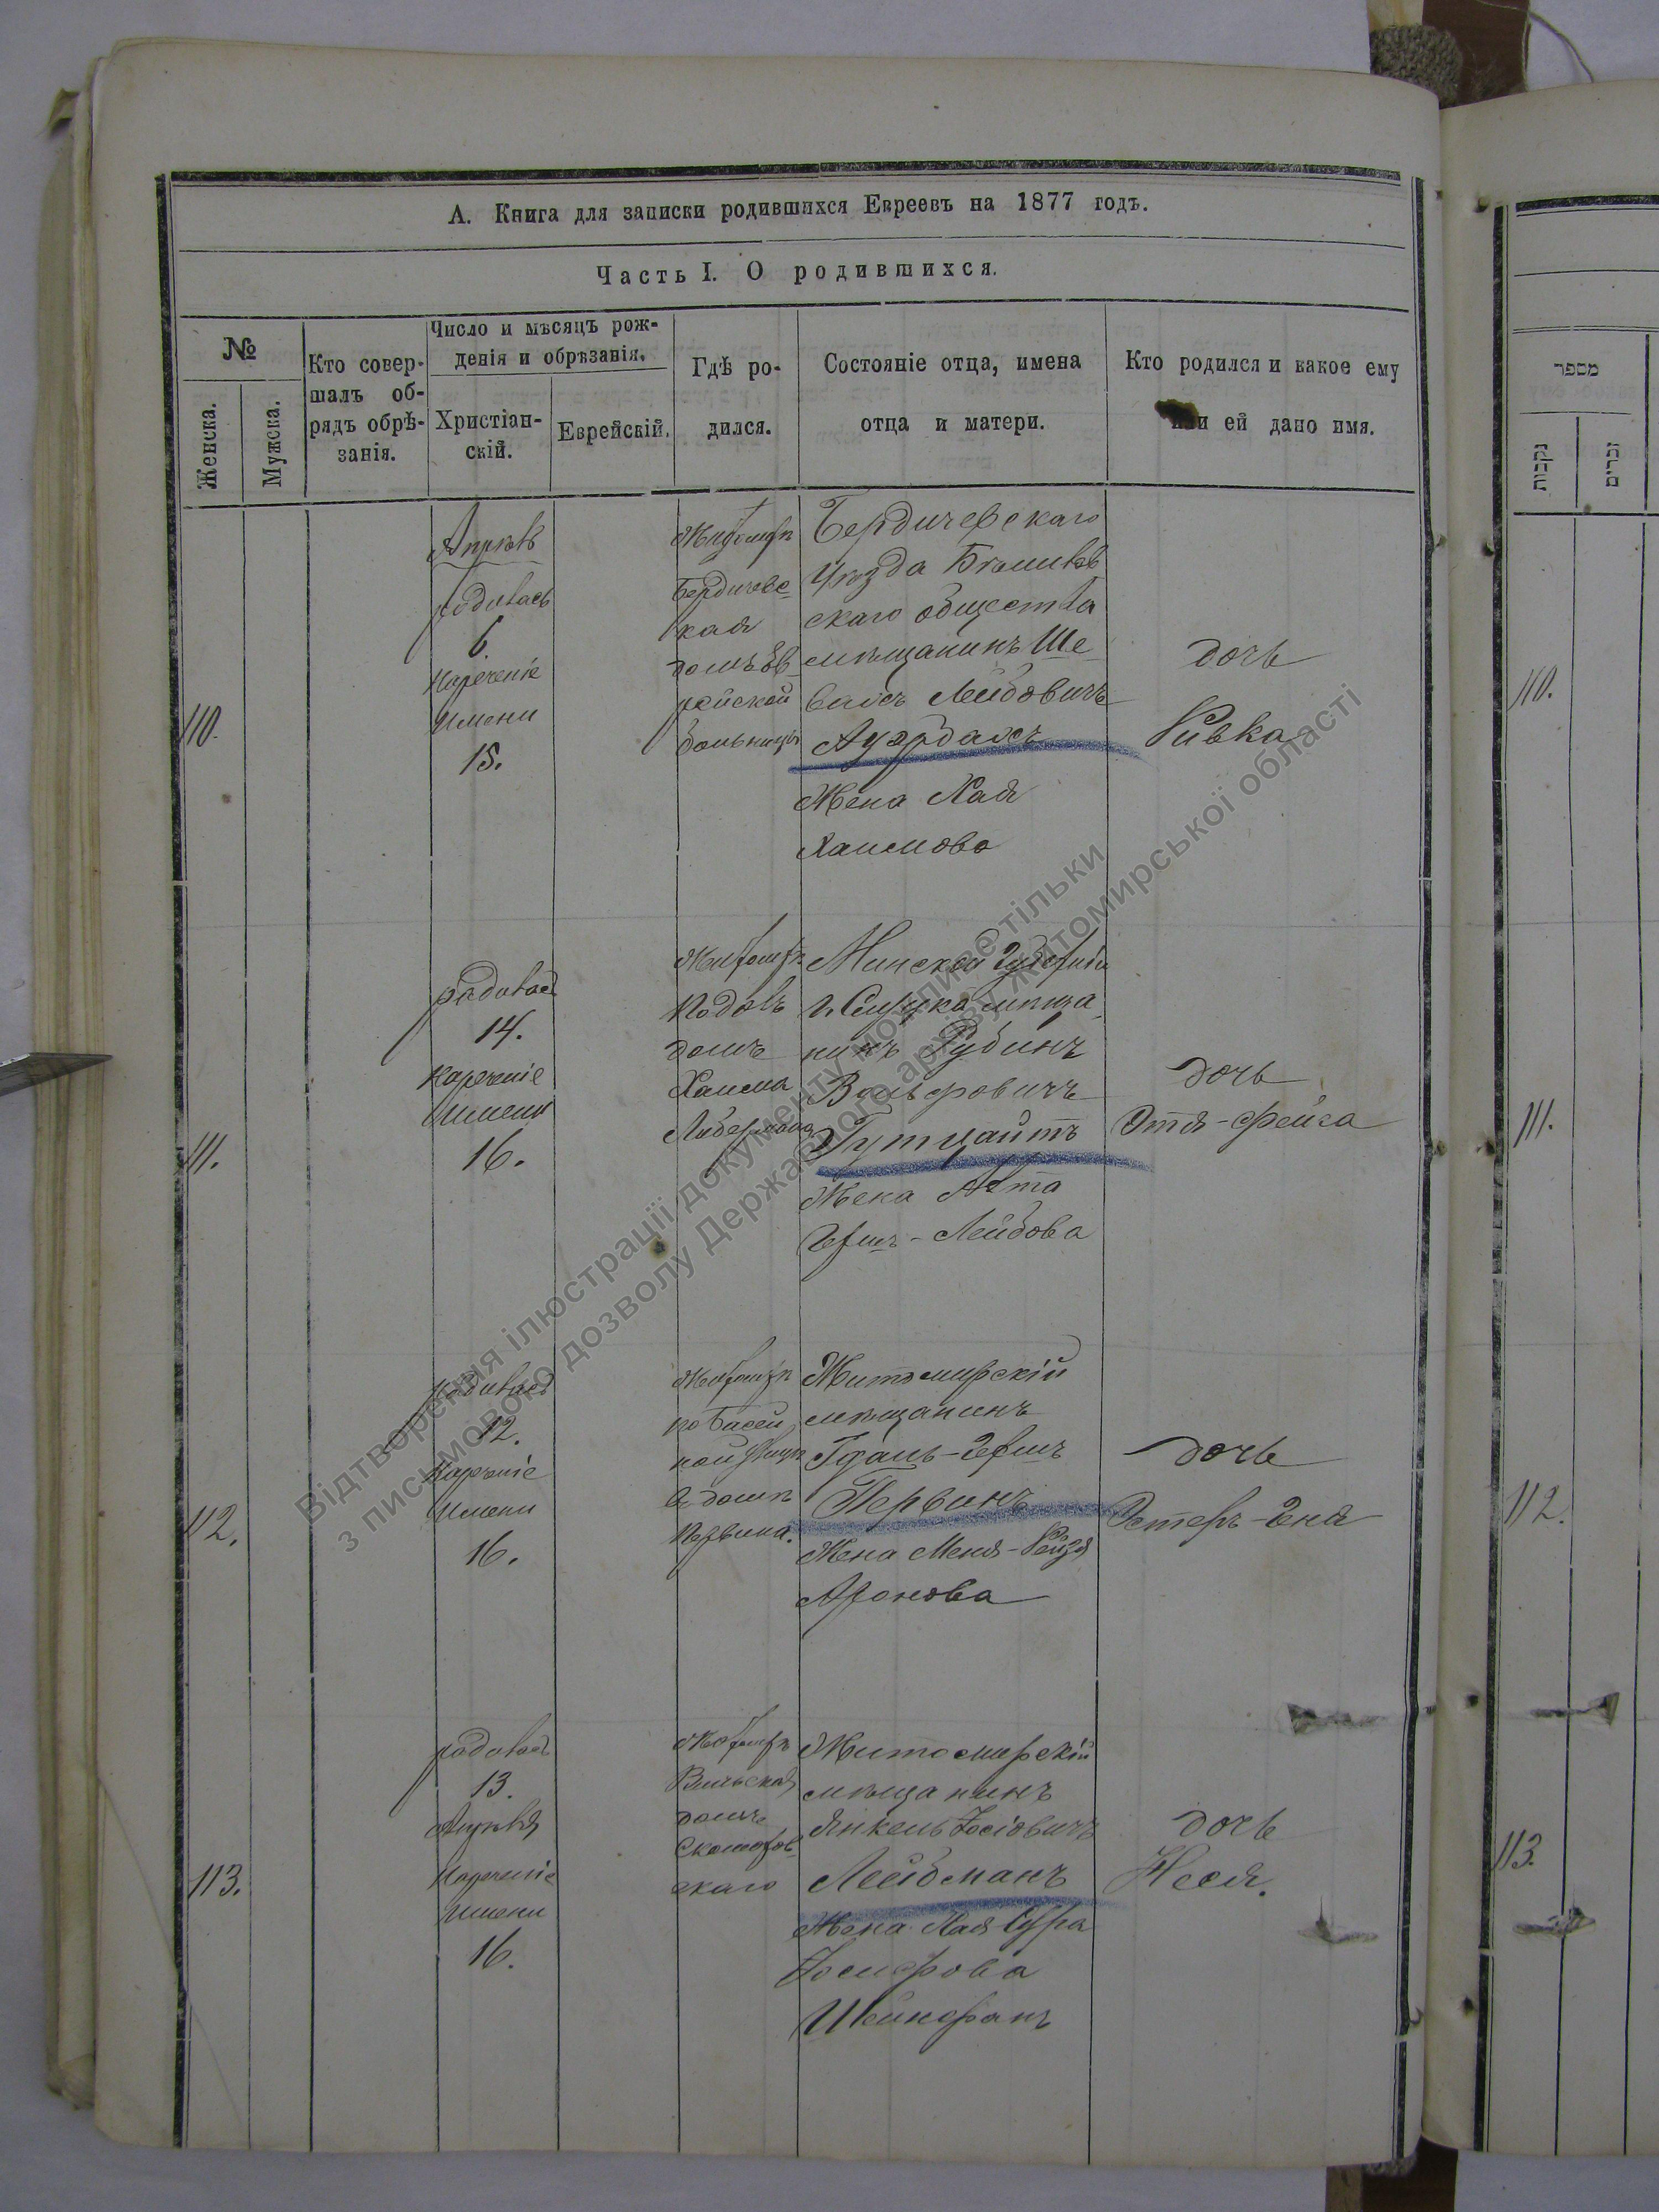 А. Книга для записки родившихся Евреевъ на 1877 годъ.
Часть I. О родившихся.
№
Женска.
Мужска.
Кто совер-
шалъ об-
рядъ обрѣ-
занія.
Число и мѣсяцъ рож-
денія и обрѣзанія.
Христіан-
скій.
Еврейскій.
Гдѣ ро-
дился.
Состояніе отца, имена
отца и матери.
Кто родился и какое ему
или ей дано имя.
110.
Апрѣль
родилась
6.
Нареченіе
Имени
15.
Житомиръ
Бердичевс-
кая
домъ Ев-
рейской
больницы
Бердичевскаго
Уѣзда
скаго общества
мѣщанинъ Ше-
Лейбовичъ
Ауэрбахъ
Жена Хая
Хаимова
дочь
Ривка
111.
родилась
14.
Нареченіе
Имени
16.
Житомиръ
Подолъ
домъ
Хаима
Либермана
Минской Губерніи
г. Слуцка мѣща-
нинъ Рубинъ
Вольфовичъ
Гутцайтъ
Жена
Герш-Лейбова
дочь
Фейга
112.
родилась
12.
Нареченіе
Имени
16.
Житомиръ
по
въ домѣ
Первина.
Житомирскій
мѣщанинъ
Гдаль-Гершъ
Первинъ
Жена Меня-Рейзя
Аронова
дочь
Эстеръ-Геня
113.
родилась
13.
Апрѣля
Нареченіе
Имени
16.
Житомиръ
Вильская
домъ
скаго
Житомирскій
мѣщанинъ
Янкель Іосіовичъ
Лейбманъ
Жена Хая-Сура
Іосифова
дочь
Неся.
מספר
נקבות
זכרים
110.
111.
112.
113.
Відтворення ілюстрації документу можливе тільки
з письмового дозволу Державного архіву Житомирської області